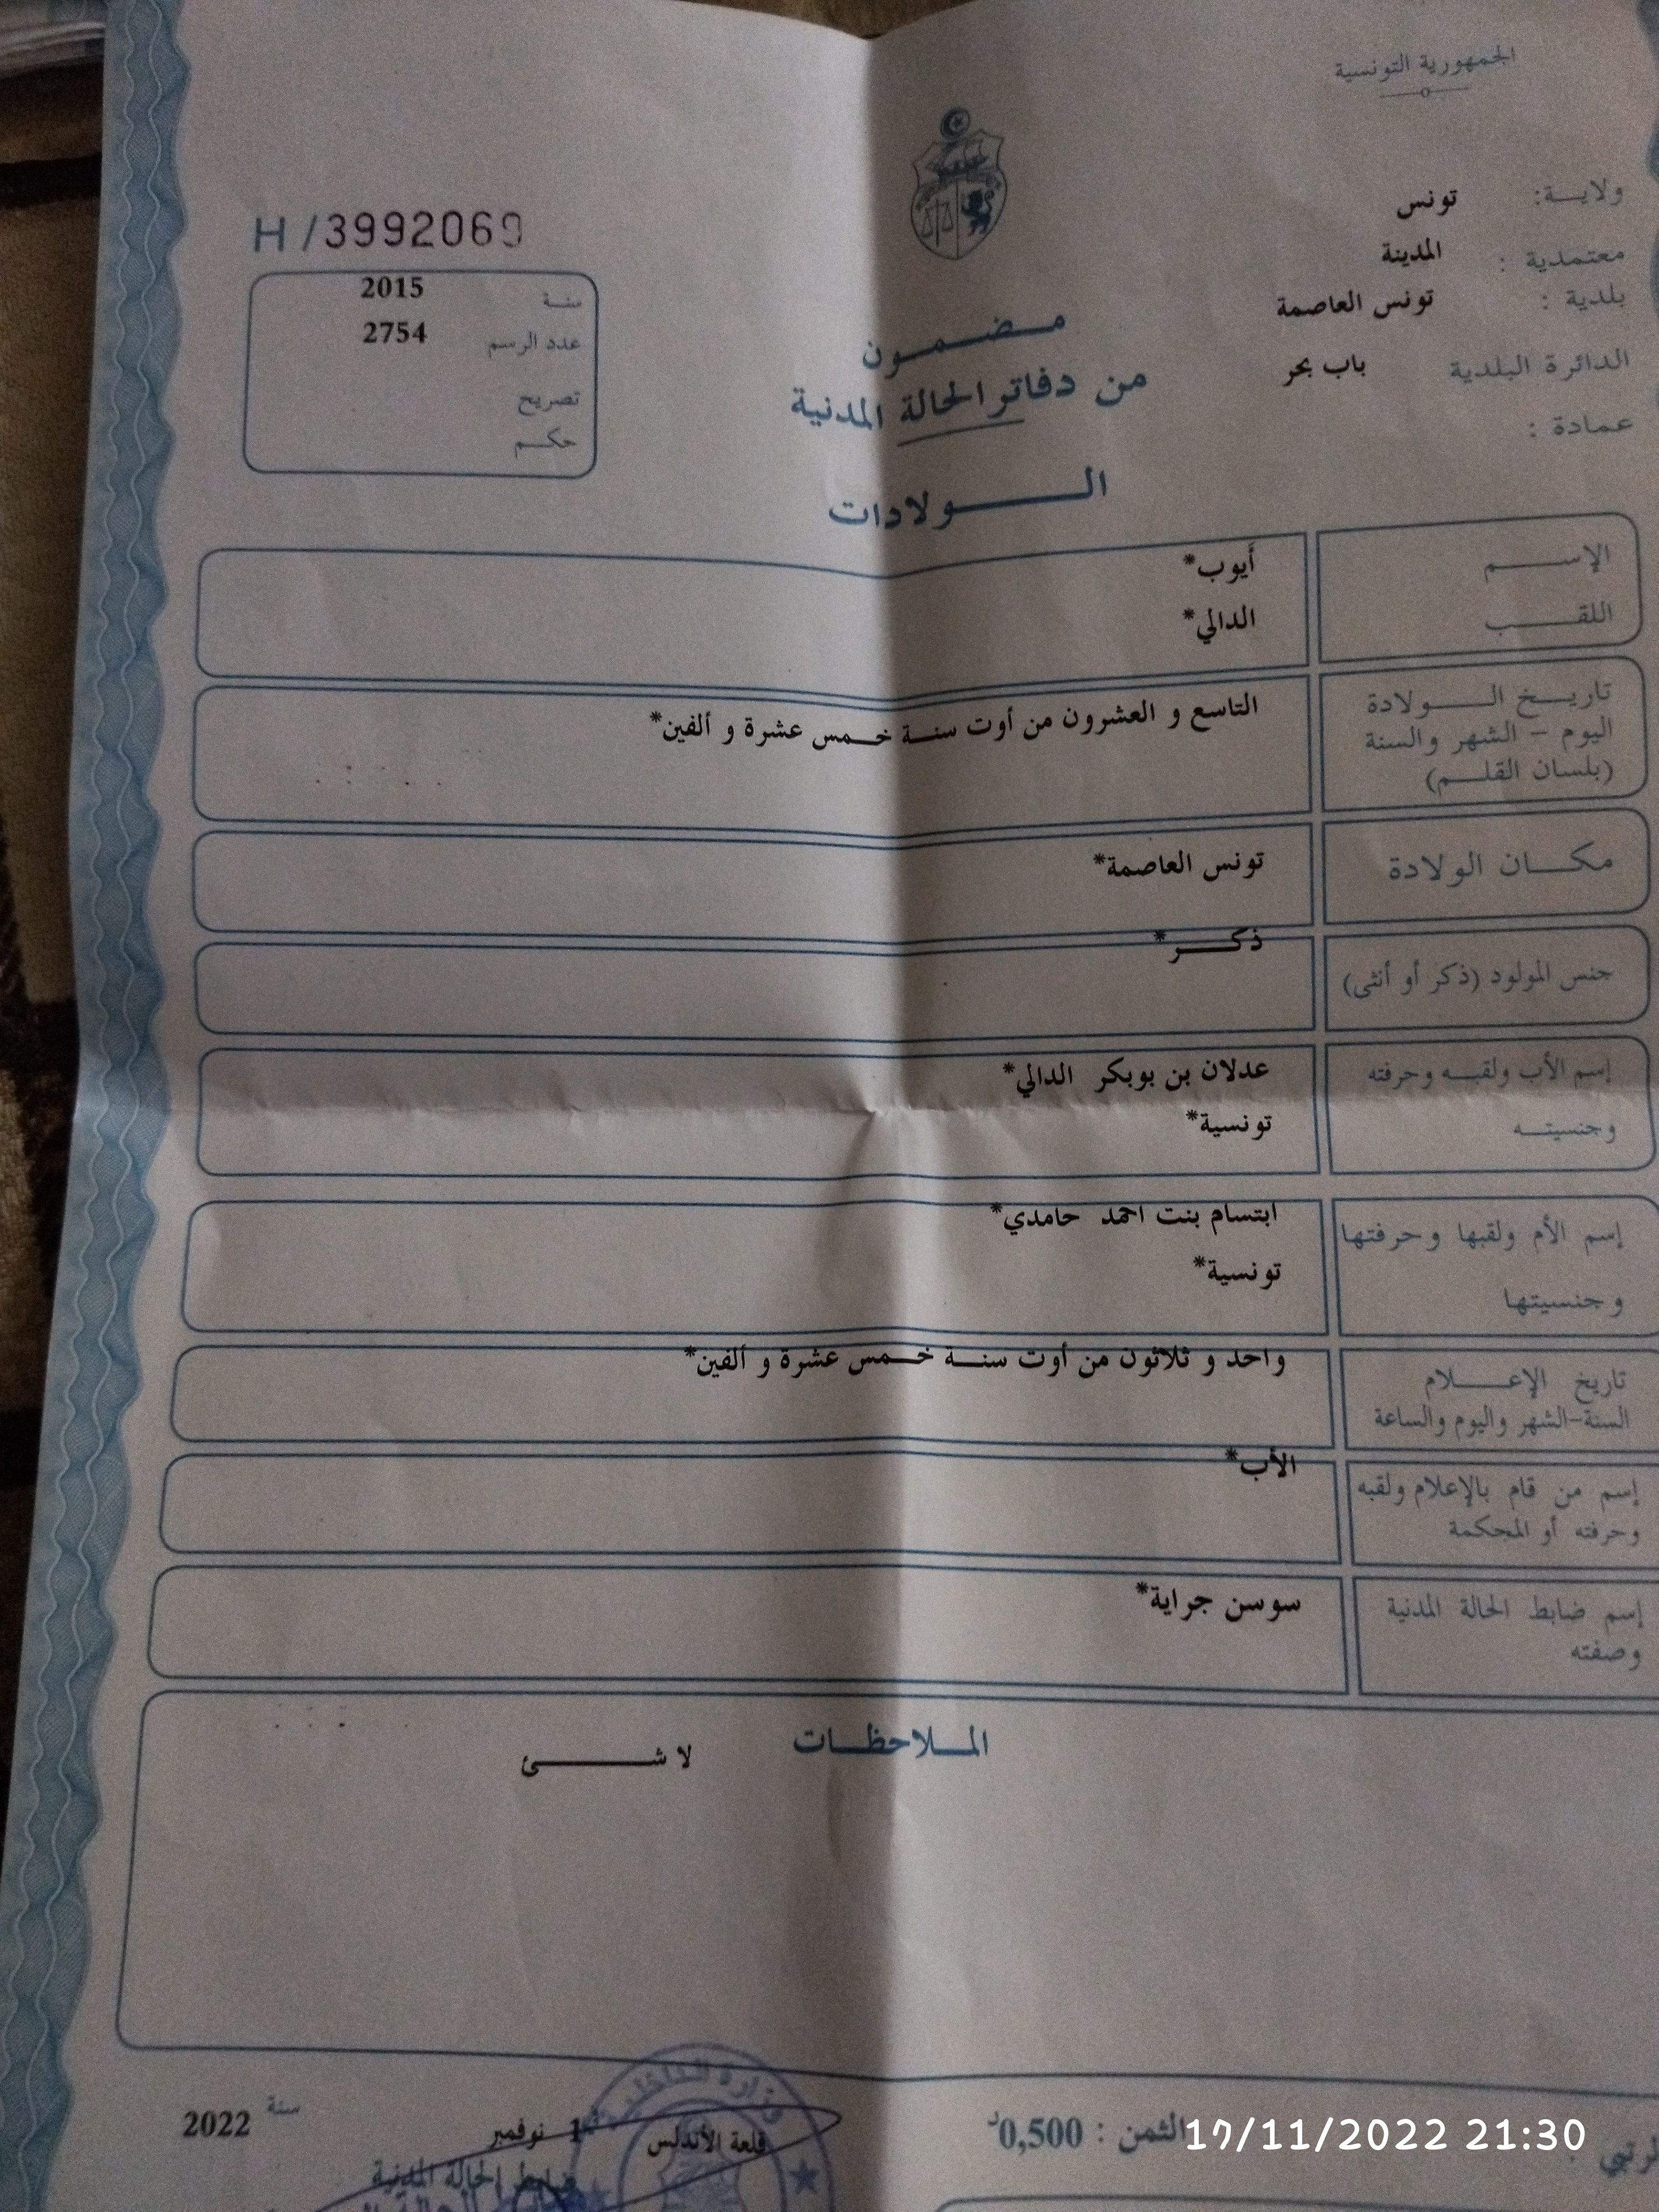 الجمهورية التونسية
ولاية: تونس
معتمدية : المدينة
بلدية : تونس العاصمة
الدائرة البلدية باب بحر
عمادة :
H /3992069
سنة 2015
عدد الرسم 2754
تصريح
حكم
مضمون
من دفاتر الحالة المدنية
الولادات
الإسم أيوب*
اللقب الدالي*
تاريخ الولادة
اليوم - الشهر والسنة
(بلسان القلم)
التاسع و العشرون من أوت سنة خمس عشرة و ألفين*
مكان الولادة تونس العاصمة*
جنس المولود (ذكر أو أنثى) ذكر*
إسم الأب ولقبه وحرفته عدلان بن بوبكر الدالي*
وجنسيته تونسية*
إسم الأم ولقبها وحرفتها ابتسام بنت احمد حامدي*
وجنسيتها تونسية*
تاريخ الإعلام
السنة-الشهر واليوم والساعة
واحد و ثلاثون من أوت سنة خمس عشرة و ألفين*
إسم من قام بالإعلام ولقبه
وحرفته أو المحكمة
الأب*
إسم ضابط الحالة المدنية
وصفته
سوسن جراية*
الملاحظات
لا شئ
وزارة الداخلية
قلعة الأندلس نوفمبر سنة 2022
ضابط الحالة المدنية
الثمن : 0,500د
19/11/2022 21:30